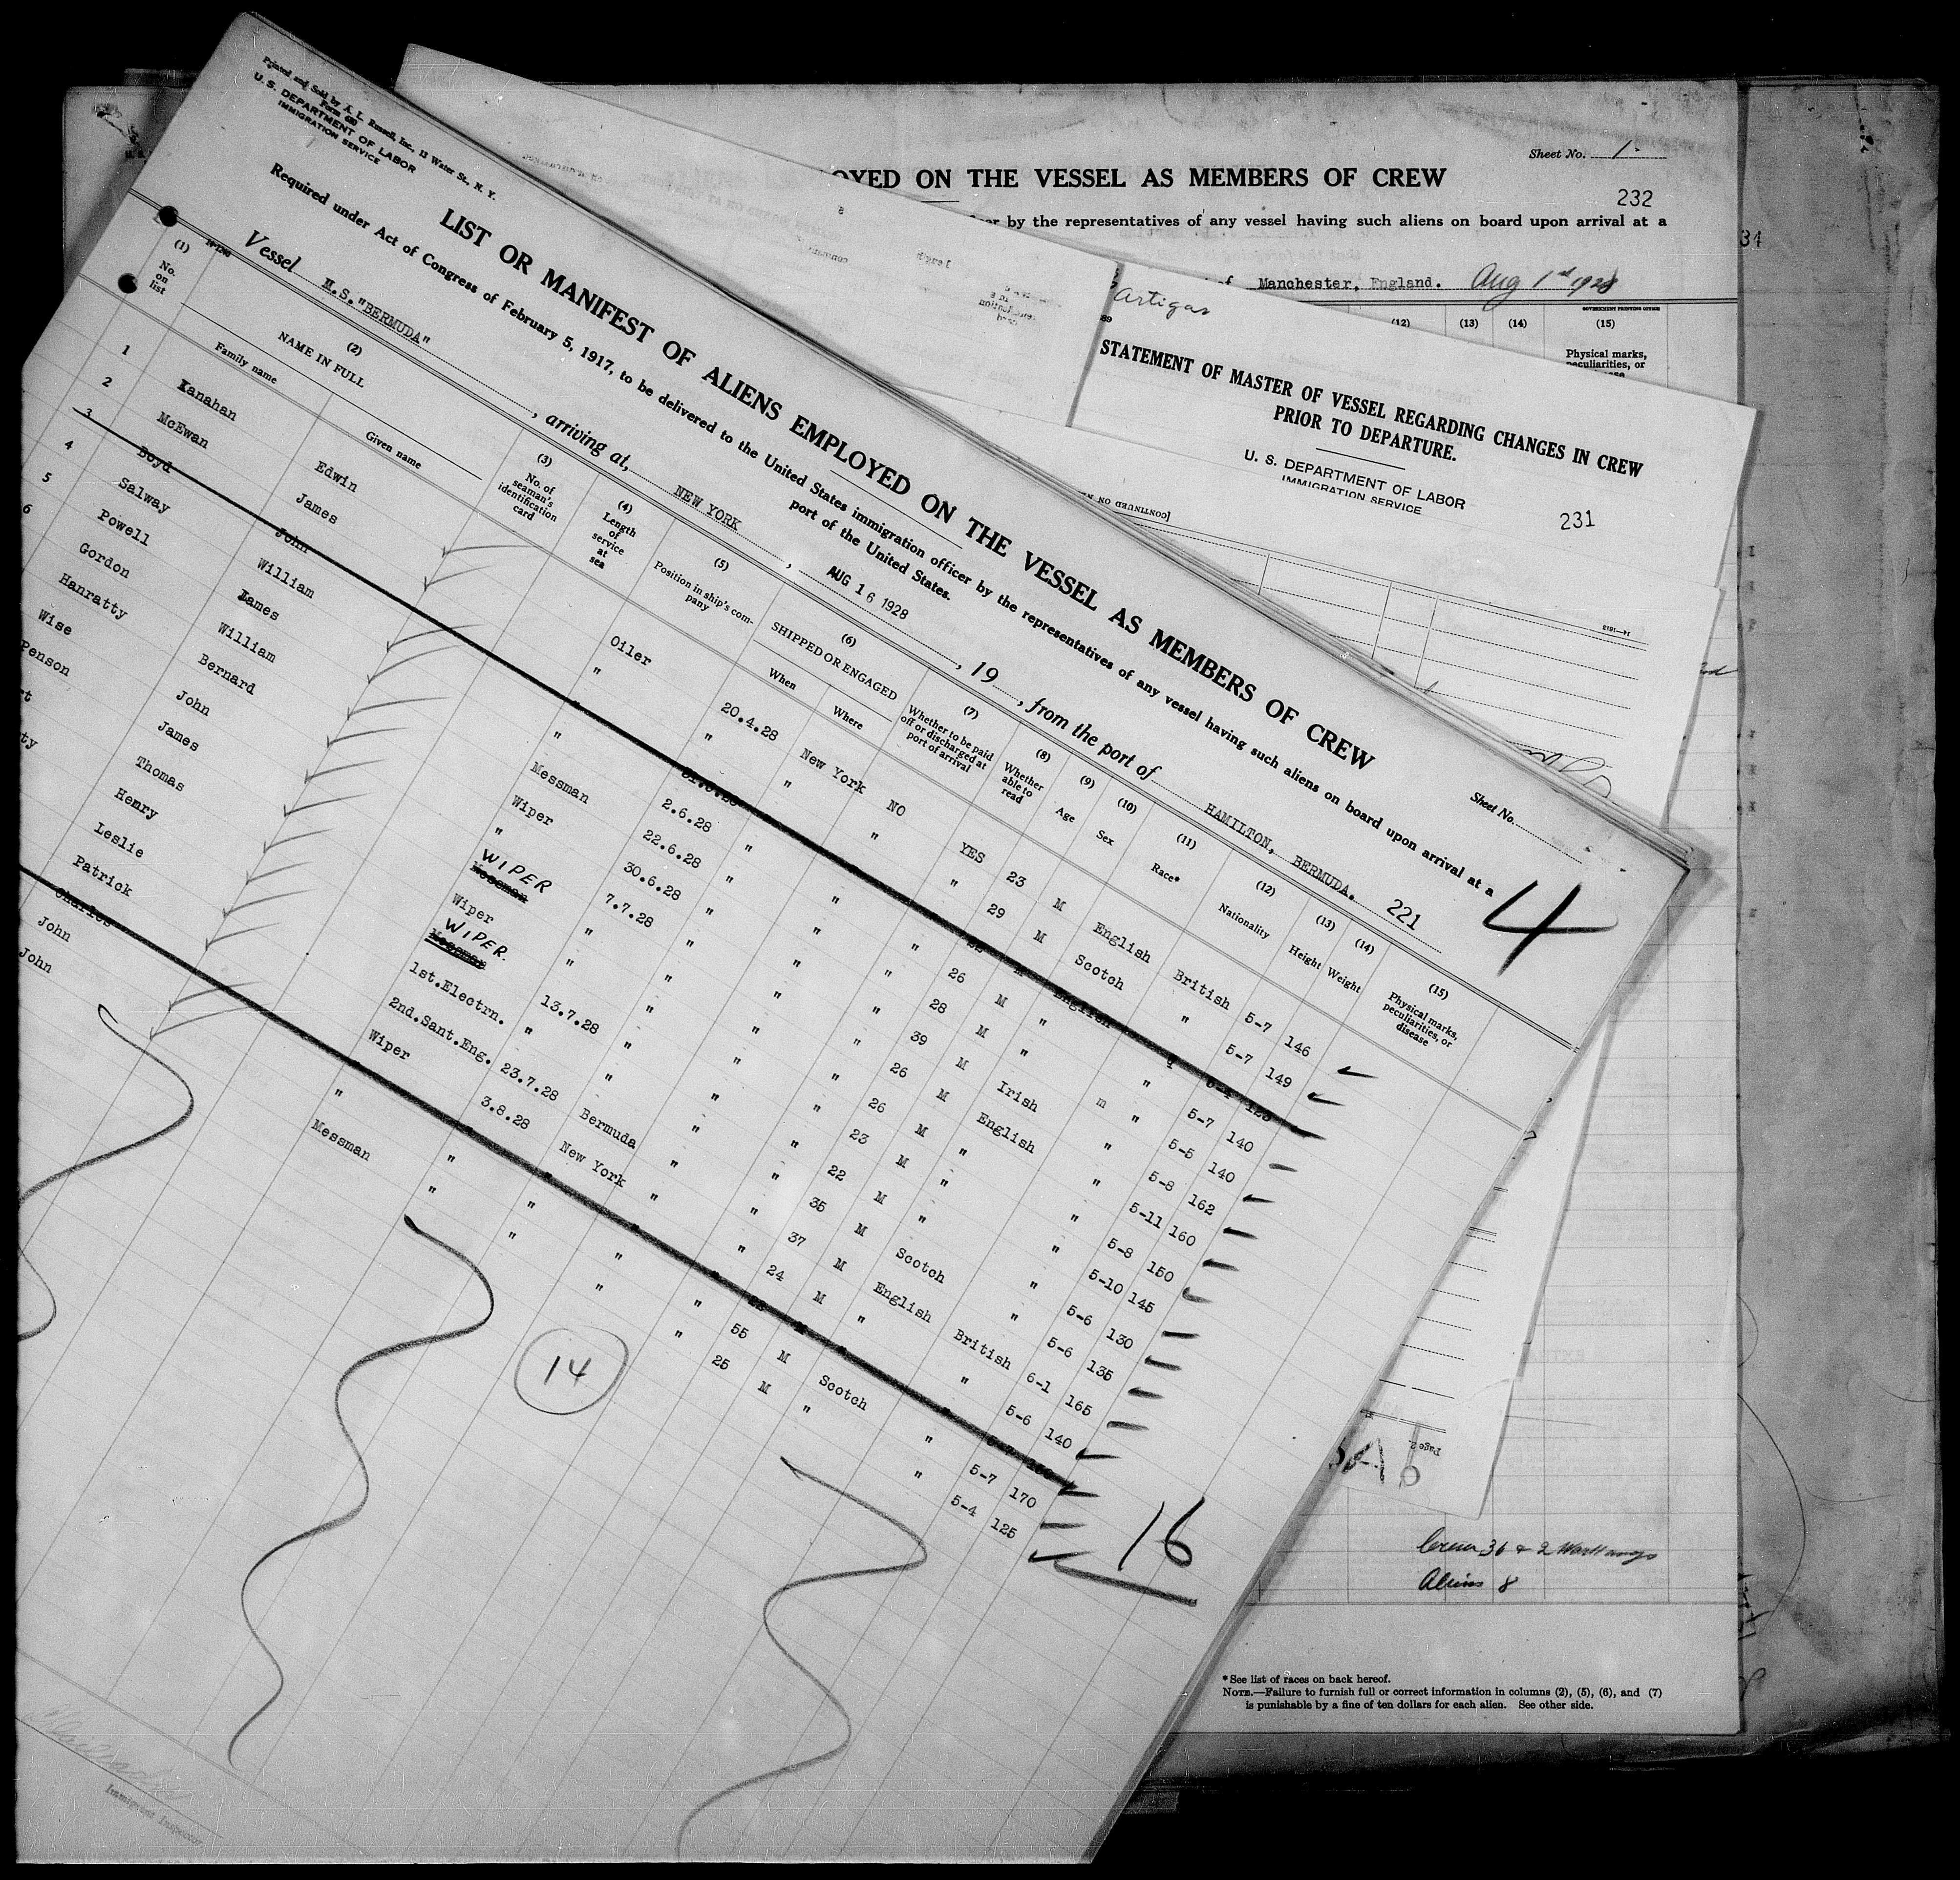 Printed and Sold by A. L. Russell, Inc., 13 Water St., N. Y.
Form 680
U. S. DEPARTMENT OF LABOR
IMMIGRATION SERVICE
LIST OR MANIFEST OF ALIENS EMPLOYED ON THE VESSEL AS MEMBERS OF CREW
Sheet No.
4
Required under Act of Congress of February 5, 1917, to be delivered to the United States immigration officer by the representatives of any vessel having such aliens on board upon arrival at a
port of the United States.
Vessel M.S."BERMUDA", arriving at, NEW YORK, AUG 16 1928, 19, from the port of HAMILTON, BERMUDA. 221
(1) (2) (3) (4) (5) (6) (7) (8) (9) (10) (11) (12) (13) (14) (15)
No. on list
NAME IN FULL
Family name
Given name
No. of seaman's identification card
Length of service at sea
Position in ship's company
SHIPPED OR ENGAGED
When
Where
Whether to be paid off or discharged at port of arrival
Whether able to read
Age
Sex
Race*
Nationality
Height
Weight
Physical marks, peculiarities, or disease
1 Kanahan Edwin Oiler 20.4.28 New York NO YES 23 M English British 5-7 146
2 McEwan James " " " " " 29 M Scotch " 5-7 149
3 Boyd John " " M English
4 Salway William " 2.6.28 " " " 26 M " " 5-7 140
5 Powell James Messman 22.6.28 " " " 28 M " " 5-5 140
6 Gordon William Wiper 30.6.28 " " " 39 M Irish " 5-8 162
Hanratty Bernard " 7.7.28 " " " 26 M English " 5-11 160
Wise John WIPER Messman " " " " 26 M " " 5-8 150
Penson James Wiper " " " " 23 M " " 5-10 145
rt Thomas WIPER. Messman 13.7.28 " " " 22 M " " 5-6 130
ty Henry 1st.Electrn. " " " " 35 M Scotch " 5-6 135
Leslie 2nd.Sant.Eng. 23.7.28 Bermuda " " 37 M English British 6-1 165
Patrick Wiper 3.8.28 New York " " 24 M " " 5-6 140
Charles " " " " " M " " 5-7
John " " " " " 55 M Scotch " 5-7 170
John Messman " " " " 25 M " " 5-4 125
14
16
Immigrant Inspector.
Sheet No. 1
OYED ON THE VESSEL AS MEMBERS OF CREW
232
by the representatives of any vessel having such aliens on board upon arrival at a
of Manchester, England. Aug 1st 1928
GOVERNMENT PRINTING OFFICE
(12) (13) (14) (15)
Physical marks,
peculiarities, or
Artigas
STATEMENT OF MASTER OF VESSEL REGARDING CHANGES IN CREW
PRIOR TO DEPARTURE.
U. S. DEPARTMENT OF LABOR
IMMIGRATION SERVICE
231
34
[CONTINUED ON
Page 2
Crew 36 & 2 Workaways
Aliens 8
*See list of races on back hereof.
NOTE.—Failure to furnish full or correct information in columns (2), (5), (6), and (7)
is punishable by a fine of ten dollars for each alien. See other side.